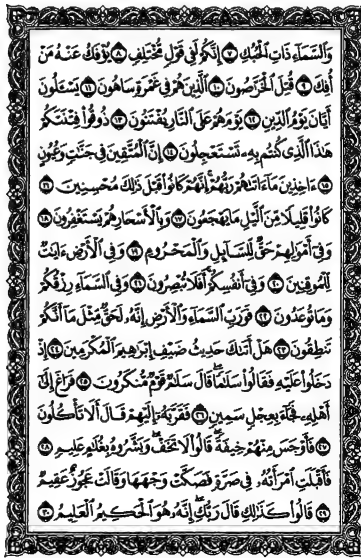 وَالسَّمَآءِ ذَاتِ الْحُبُكِ ٧ إِنَّكُمْ لَفِى قَوْلٍ مُّخْتَلِفٍ ٨ يُؤْفَكُ عَنْهُ مَنْ
أُفِكَ ٩ قُتِلَ الْخَرَّٰصُونَ ١٠ الَّذِينَ هُمْ فِى غَمْرَةٍ سَاهُونَ ١١ يَسْـَٔلُونَ
أَيَّانَ يَوْمُ الدِّينِ ١٢ يَوْمَ هُمْ عَلَى النَّارِ يُفْتَنُونَ ١٣ ذُوقُوا۟ فِتْنَتَكُمْ
هَٰذَا الَّذِى كُنتُم بِهِۦ تَسْتَعْجِلُونَ ١٤ إِنَّ الْمُتَّقِينَ فِى جَنَّٰتٍ وَعُيُونٍ
١٥ ءَاخِذِينَ مَآ ءَاتَىٰهُمْ رَبُّهُمْ إِنَّهُمْ كَانُوا۟ قَبْلَ ذَٰلِكَ مُحْسِنِينَ ١٦
كَانُوا۟ قَلِيلًا مِّنَ الَّيْلِ مَا يَهْجَعُونَ ١٧ وَبِالْأَسْحَارِ هُمْ يَسْتَغْفِرُونَ ١٨
وَفِىٓ أَمْوَٰلِهِمْ حَقٌّ لِّلسَّآئِلِ وَالْمَحْرُومِ ١٩ وَفِى الْأَرْضِ ءَايَٰتٌ
لِّلْمُوقِنِينَ ٢٠ وَفِىٓ أَنفُسِكُمْ أَفَلَا تُبْصِرُونَ ٢١ وَفِى السَّمَآءِ رِزْقُكُمْ
وَمَا تُوعَدُونَ ٢٢ فَوَرَبِّ السَّمَآءِ وَالْأَرْضِ إِنَّهُۥ لَحَقٌّ مِّثْلَ مَآ أَنَّكُمْ
تَنطِقُونَ ٢٣ هَلْ أَتَىٰكَ حَدِيثُ ضَيْفِ إِبْرَٰهِيمَ الْمُكْرَمِينَ ٢٤ إِذْ
دَخَلُوا۟ عَلَيْهِ فَقَالُوا۟ سَلَٰمًا قَالَ سَلَٰمٌ قَوْمٌ مُّنكَرُونَ ٢٥ فَرَاغَ إِلَىٰٓ
أَهْلِهِۦ فَجَآءَ بِعِجْلٍ سَمِينٍ ٢٦ فَقَرَّبَهُۥٓ إِلَيْهِمْ قَالَ أَلَا تَأْكُلُونَ
٢٧ فَأَوْجَسَ مِنْهُمْ خِيفَةً قَالُوا۟ لَا تَخَفْ وَبَشَّرُوهُ بِغُلَٰمٍ عَلِيمٍ ٢٨
فَأَقْبَلَتِ امْرَأَتُهُۥ فِى صَرَّةٍ فَصَكَّتْ وَجْهَهَا وَقَالَتْ عَجُوزٌ عَقِيمٌ
٢٩ قَالُوا۟ كَذَٰلِكِ قَالَ رَبُّكِ إِنَّهُۥ هُوَ الْحَكِيمُ الْعَلِيمُ ٣٠